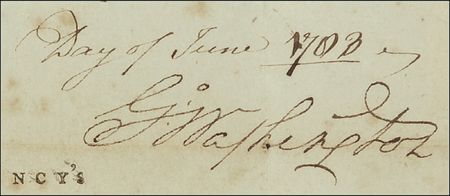 Day of June 1783
Go Washington
NCY'S